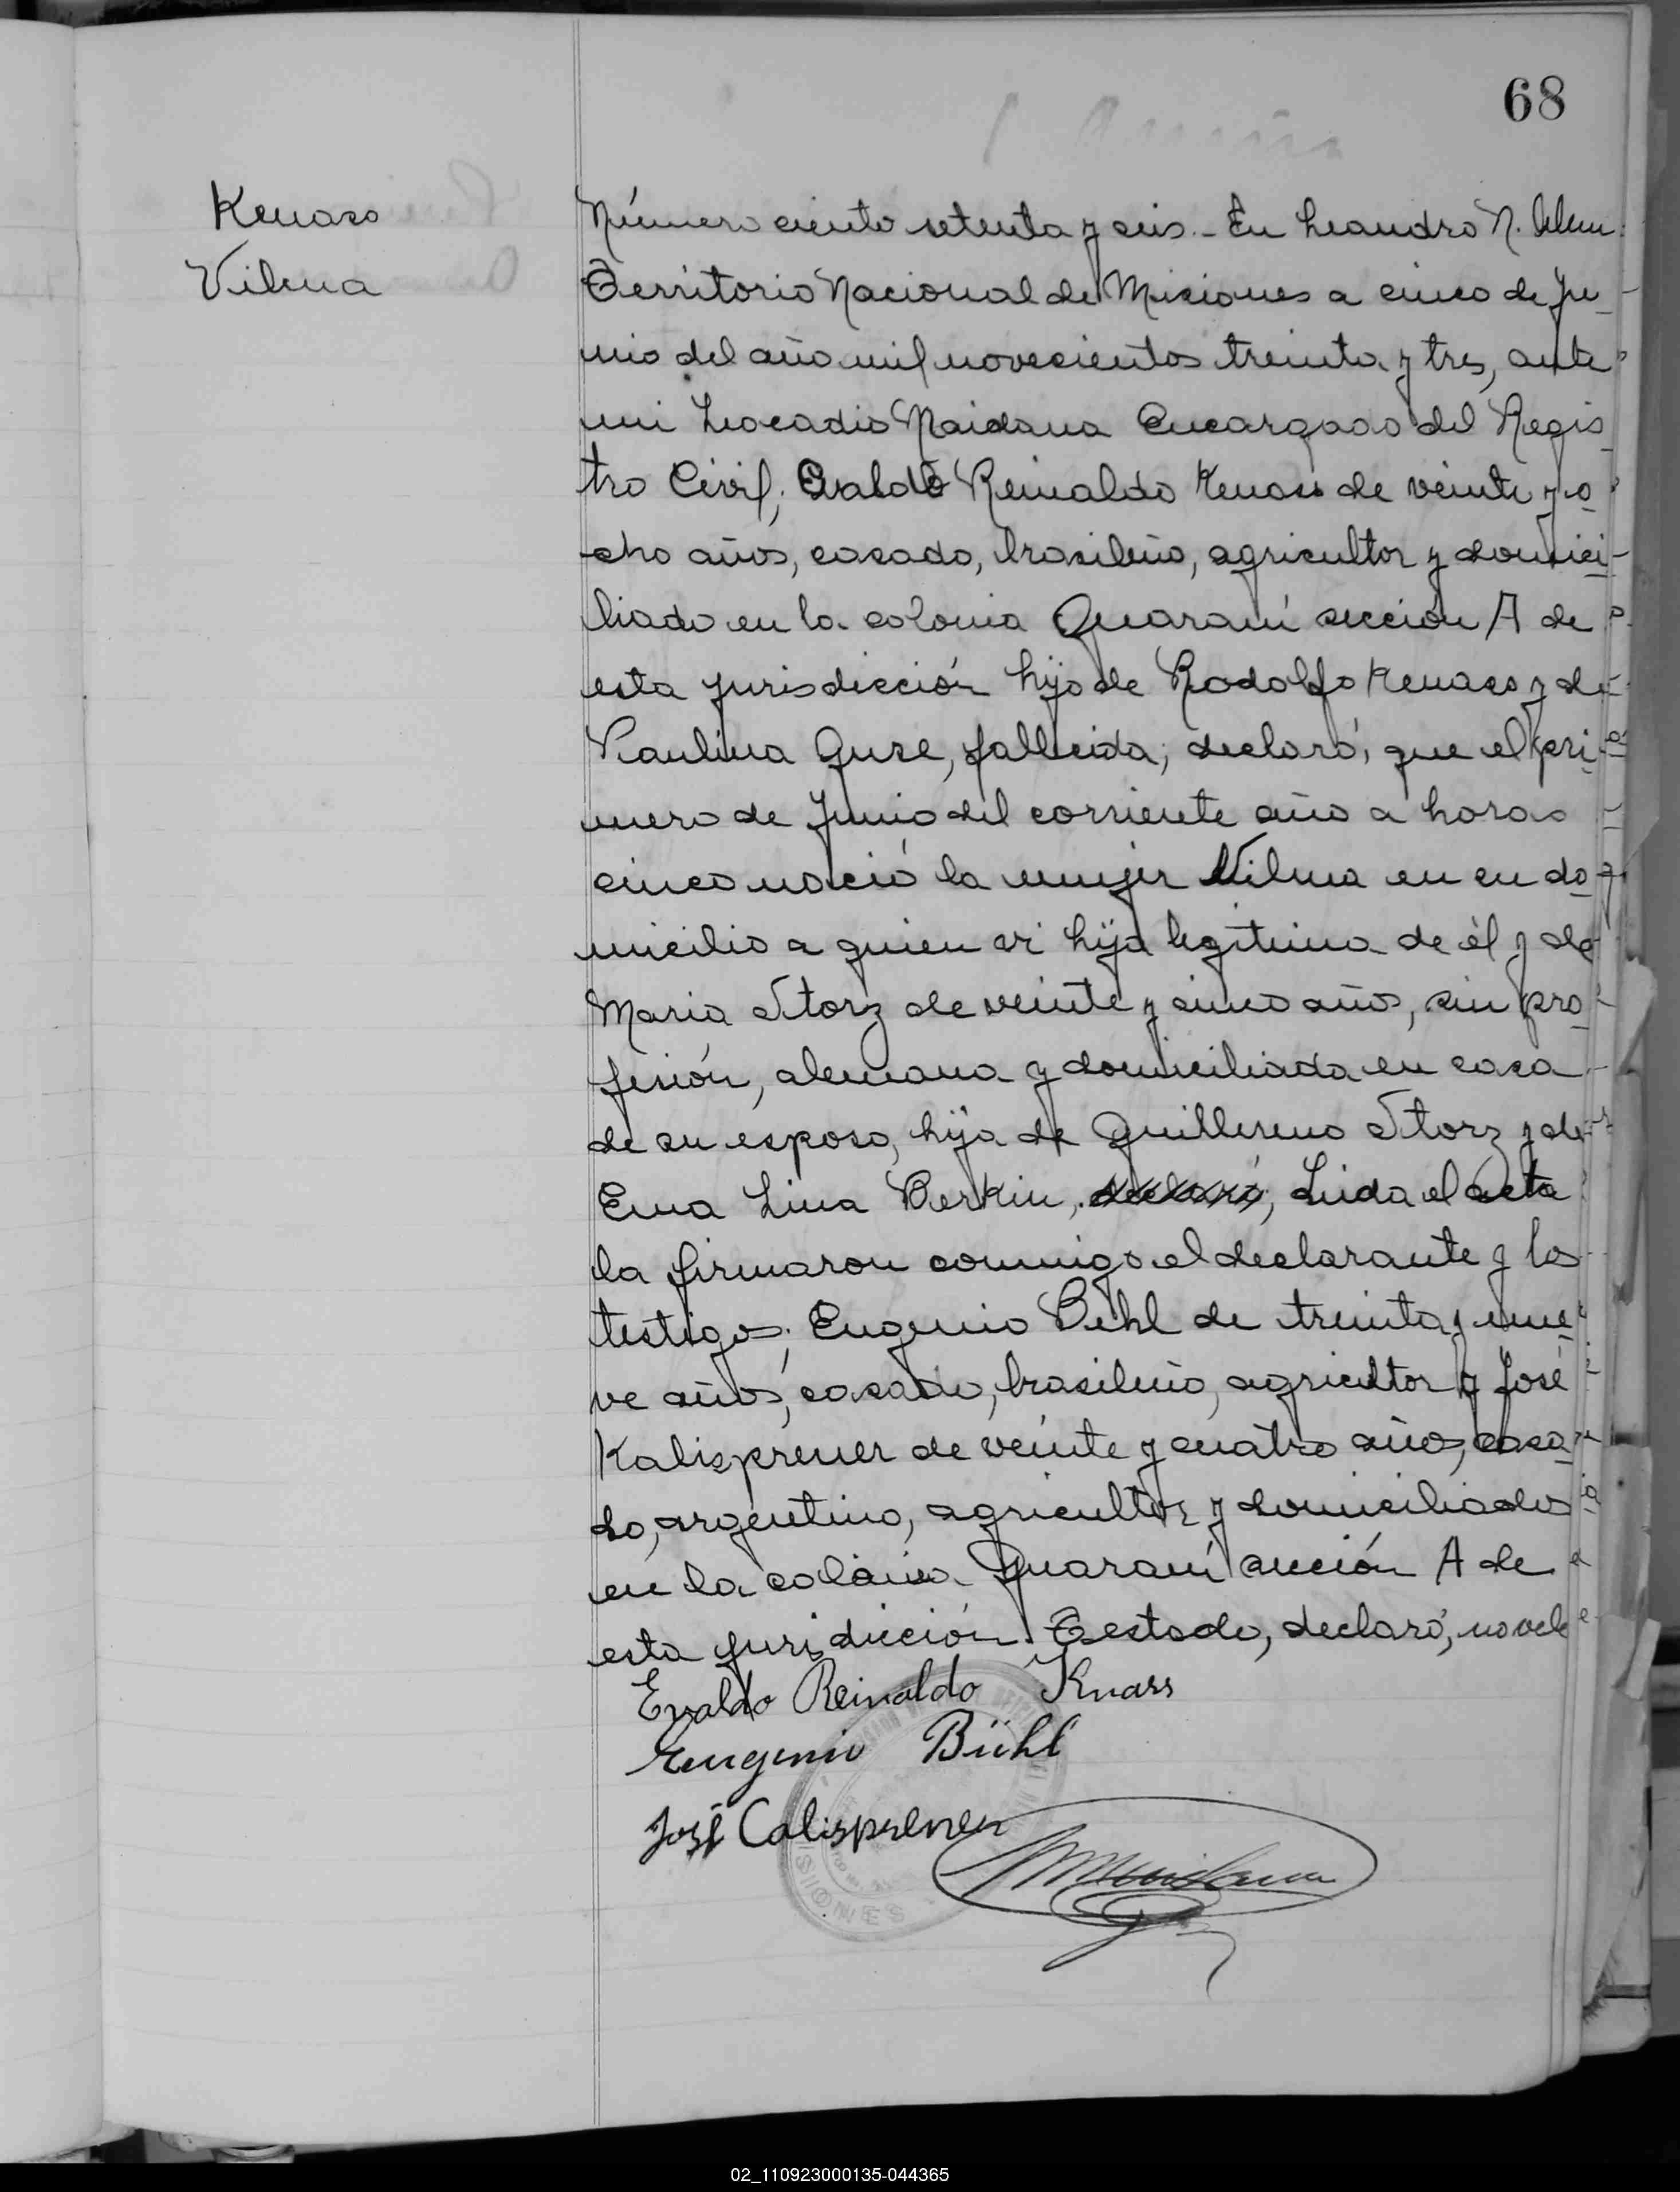 68
Kenass
Vilma
Número ciento setenta y seis.- En Leandro N. Alem
Territorio Nacional de Misiones a cinco de Ju
nio del año mil novecientos treinta y tres, ante
mi Leocadio Maidana Encargado del Regis
tro Civil; Evaldo Reinaldo Kenass de veinte y o
cho años, casado, brasileño, agricultor y domici
liado en la colonia Guaraní sección A de
esta jurisdicción hijo de Rodolfo Kenass y de
Paulina Guse, fallecida; declaró, que el pri
mero de Junio del corriente año a horas
cinco nació la mujer Vilma en su do
micilio a quien vi hija legitima de él y de
Maria Storz de veinte y cinco años, sin pro
fesión, alemana y domiciliada en casa
de su esposo, hija de Guillermo Storz y de
Ema Lina Berkin, declaró; Leida el acta
la firmaron conmigo el declarante y los
testigos; Eugenio Behl de treinta y nue
ve años, casado, brasileño, agricultor y José
Kalisprener de veinte y cuatro años, casa
do, argentino, agricultor y domiciliados
en la colonia Guaraní sección A de
esta jurisdicción. Testado, declaró, no vale
Evaldo Reinaldo Knass
Eugenio Bühl
José Calisprener
MISIONES
02_110923000135-044365